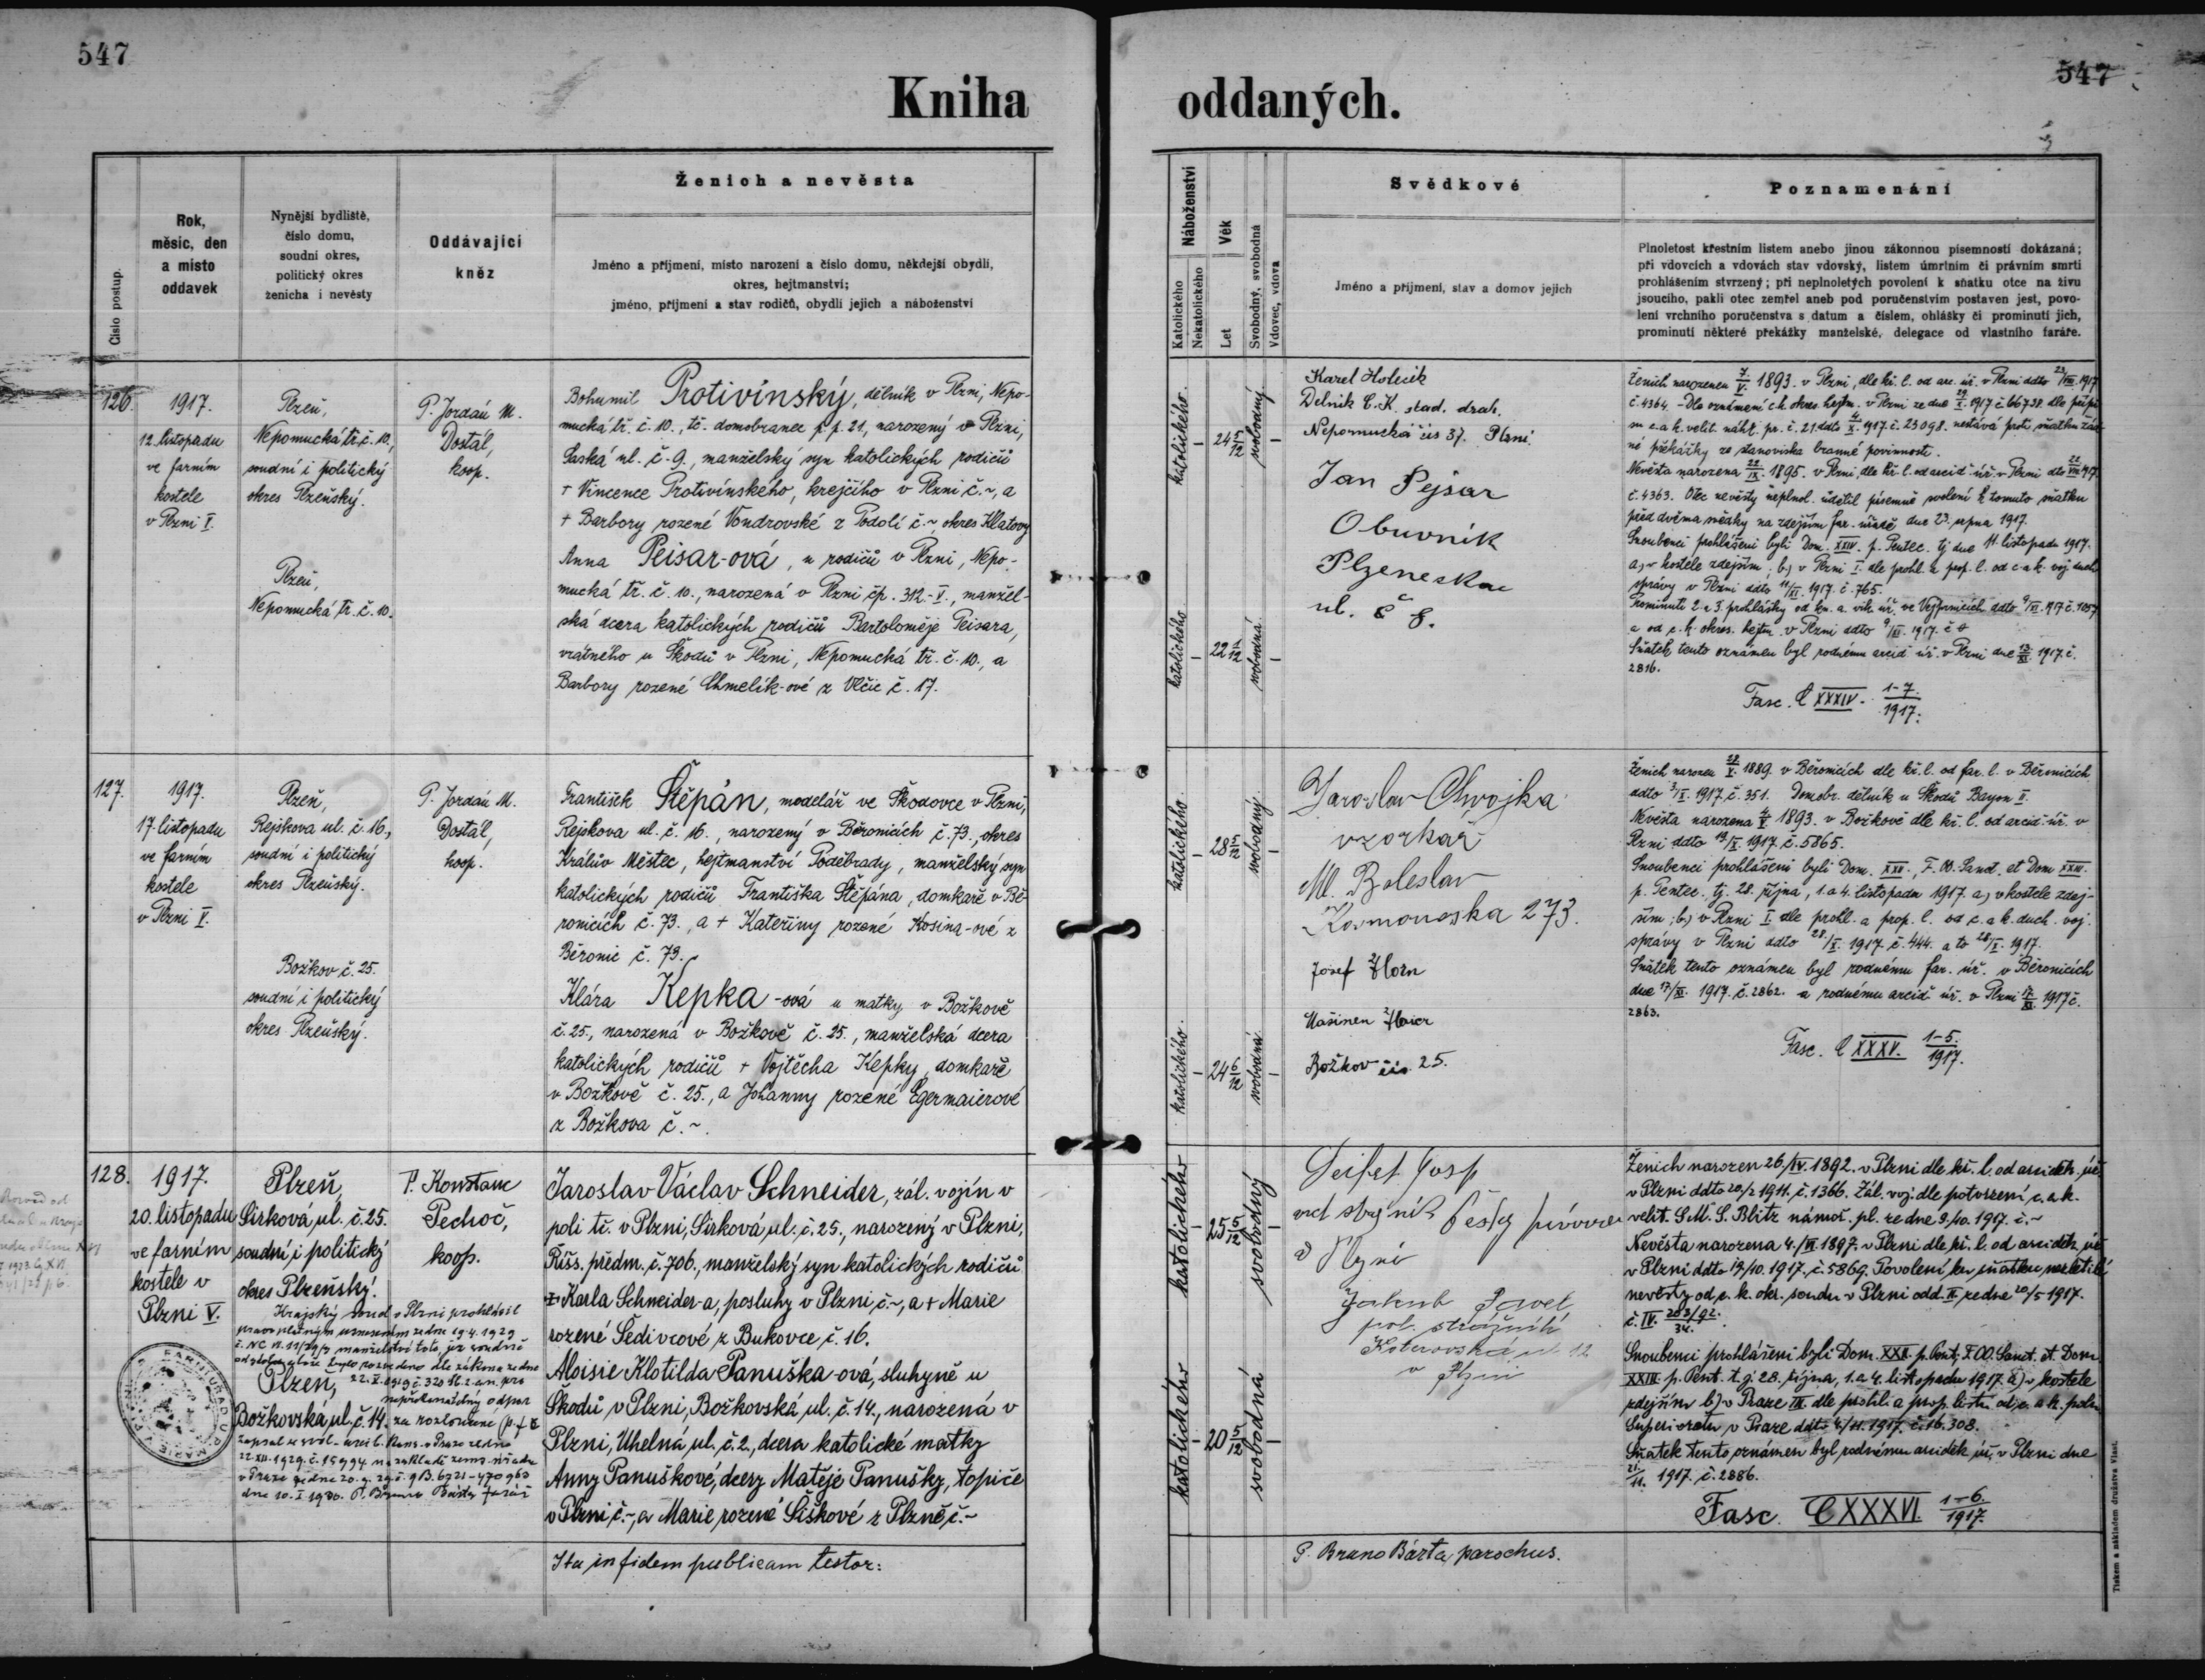 547
547
Kniha oddaných.
Číslo postup.
Rok,
měsíc, den
a místo
oddavek
Nynější bydliště,
číslo domu,
soudní okres,
politický okres
ženicha i nevěsty
Oddávající
kněz
Ženich a nevěsta
Jméno a příjmení, místo narození a číslo domu, někdejší obydlí,
okres, hejtmanství;
jméno, příjmení a stav rodičů, obydlí jejich a náboženství
Náboženství
Katolického
Nekatolického
Věk
Let
Svobodný, svobodná
Vdovec, vdova
Svědkové
Jméno a příjmení, stav a domov jejich
Poznamenání
Plnoletost křestním listem anebo jinou zákonnou písemností dokázaná;
při vdovcích a vdovách stav vdovský, listem úmrtním či právním smrti
prohlášením stvrzený; při neplnoletých povolení k sňatku otce na živu
jsoucího, pakli otec zemřel aneb pod poručenstvím postaven jest, povo-
lení vrchního poručenstva s datum a číslem, ohlášky či prominutí jich,
prominutí některé překážky manželské, delegace od vlastního faráře.
126.
1917.
12. listopadu
ve farním
kostele
v Plzni V.
Plzeň,
Nepomucká tř. č. 10.,
soudní i politický
okres Plzeňský.
Plzeň,
Nepomucká tř. č. 10.
P. Jordán M.
Dostál,
koop.
Bohumil Protivínský, dělník v Plzni, Nepo-
mucká tř. č. 10., tč. domobranec p. p. 21, narozený v Plzni,
Saská ul. č. 9., manželský syn katolických rodičů
+ Vincence Protivínského, krejčího v Plzni č. ~, a
+ Barbory rozené Vondrovské z Podolí č. ~ okres Klatovy
Anna Peisar-ová, u rodičů v Plzni, Nepo-
mucká tř. č. 10., narozená v Plzni čp. 312.-V., manžel-
ská dcera katolických rodičů Bartoloměje Peisara,
vrátného u Škodů v Plzni, Nepomucká tř. č. 10., a
Barbory rozené Chmelík-ové z Vlčic č. 17.
katolického. - 24 5/12 svobodný. -
katolického - 22 1/12 svobodná. -
Karel Holecik
Delnik C. K. stad. drah.
Nepomucká čis 37. Plzni
Jan Pejsar
Obuvnik
Plzeneska
ul. č 8.
Ženich narozen 7/V. 1893. v Plzni, dle kř. l. od arc. úř. v Plzni ddto 22/VIII. 1917
č. 4364. - Dle oznámení c. k. okres. hejtm. v Plzni ze dne 1917 č. 66738. dle příp.
Nevěsta narozena 22/IX. 1895. v Plzni, dle kř. l. od arcid. úř. v Plzni
č. 4363. Otec nevěsty neplnol. udělil písemné svolení k tomuto sňatku
před dvěma svědky na zdejším far. úřadě dne 23. srpna 1917.
Snoubenci prohlášeni byli Dom. XXIV. p. Pentec. tj. dne 11. listopadu 1917.
a) v kostele zdejším; b) v Plzni I. dle prohl. a prop. l. od c. a k. voj. duch.
správy v Plzni ddto 11/XI. 1917. č. 765.
a od c. k. okres. hejtm. v Plzni ddto 9/XI. 1917. č.
Sňatek tento oznámen byl rodnému arcid. úř. v Plzni dne 13/XI. 1917. č.
2816.
Fasc. CXXXIV. 1-7./1917.
127.
1917.
17. listopadu
ve farním
kostele
v Plzni V.
Plzeň,
Rejskova ul. č. 16.,
soudní i politický
okres Plzeňský.
Božkov č. 25.
soudní i politický
okres Plzeňský.
P. Jordán M.
Dostál,
koop.
František Štěpán, modelář ve Škodovce v Plzni,
Rejskova ul. č. 16., narozený v Běronicích č. 73., okres
Králův Městec, hejtmanství Poděbrady, manželský syn
katolických rodičů Františka Štěpána, domkaře v Bě-
ronicích č. 73., a + Kateřiny rozené Kosina-ové z
Běronic č. 73.
Klára Kepka-ová u matky v Božkově
č. 25., narozená v Božkově č. 25., manželská dcera
katolických rodičů + Vojtěcha Kepky, domkaře
v Božkově č. 25., a Johanny rozené Egermaierové
z Božkova č. ~.
katolického. - 28 5/12 svobodný. -
katolického. - 24 6/12 svobodná. -
Jaroslav Chvojka
vzorkař
Ml. Boleslav
Kosmonoska 273.
Josef
Božkov čis 25.
Ženich narozen 1889. v Běronicích dle kř. l. od far. l. v Běronicích
ddto 3/X. 1917. č. 351. Domobr. dělník u Škodů Bayon II.
Nevěsta narozena 4/V. 1893. v Božkově dle kř. l. od arcid. úř. v
Plzni ddto 19/X. 1917. č. 5865.
Snoubenci prohlášeni byli Dom. XXII., F. OO. Sanct. et Dom XXIII.
p. Pentec. tj. 28. října, 1. a 4. listopadu 1917. a) v kostele zdej-
ším; b) v Plzni I. dle prohl. a prop. l. od c. a k. duch. voj.
správy v Plzni ddto 28/X. 1917. č. 444. a to 28/X. 1917.
Sňatek tento oznámen byl rodnému far. úř. v Běronicích
dne 17/XI. 1917. č. 2862. a rodnému arcid. úř. v Plzni 17/XI. 1917 č.
2863.
Fasc. CXXXV. 1-5./1917.
128.
1917.
20. listopadu
ve farním
kostele v
Plzni V.
Plzeň,
Sirková ul. č. 25.
soudní i politický
okres Plzeňský.
Krajský soud v Plzni prohlásil
pravoplatným usnesením ze dne 19.4.1929
č. NC VI. 11/29/3 manželství toto, jež soudně
od stolu a lože bylo rozvedeno dle zákona ze dne
22.V.1919 č. 320 Sb. z. a n. pro
nepřekonatelný odpor
za rozloučené
Plzeň,
Božkovská ul. č. 14.
22.XII.1929. č. 15994
dne 10.I.1930.
P. Konstanc
Pechoč,
koop.
Jaroslav Václav Schneider, zál. vojín v
poli tč. v Plzni, Sirková ul. č. 25., narozený v Plzni,
Říšs. předm. č. 706., manželský syn katolických rodičů
+ Karla Schneider-a, posluhy v Plzni, č. ~, a + Marie
rozené Šedivcové z Bukovce č. 16.
Aloisie Klotilda Panuška-ová, sluhyně u
Škodů v Plzni, Božkovská ul. č. 14., narozená v
Plzni, Uhelná ul. č. 2., dcera katolické matky
Anny Panuškové, dcery Matěje Panušky, topiče
v Plzni č. ~, a Marie rozené Šiškové z Plzně, č. ~
katolického - 25 6/12 svobodný -
katolického - 20 5/12 svobodná -
Seifet Josf
v Plzni
Jakub Pavel,
pol. strážník
Koterovská ul. 12
v Plzni
Ženich narozen 26./IV. 1892. v Plzni dle kř. l. od arciděk. úř.
v Plzni ddto 20/2 1911. č. 1366. Zál. voj. dle potvrzení c. a k.
velit. S.M.S. Blitz námoř. pl. ze dne 9./10. 1917. č. ~
Nevěsta narozena 4./VI. 1897. v Plzni dle kř. l. od arciděk. úř.
v Plzni ddto 19/10. 1917. č. 5869. Povolení ku sňatku nezletilé
nevěsty od c. k. okr. soudu v Plzni odd. II ze dne 20/5 1917.
č. IV. 203/92./34.
Snoubenci prohlášeni byli Dom. XXII. p. Pent., F. OO. Sanct. et Dom.
XXIII. p. Pent. t. j. 28. října, 1. a 4. listopadu 1917. a) v kostele
zdejším b) v Praze III. dle prohl. a prop. listu od c. a k. poln.
Superioratu v Praze ddto 4/11. 1917. č. 16.308.
Sňatek tento oznámen byl rodnému arciděk. úř. v Plzni dne
21./11. 1917. č. 2886.
Fasc. CXXXVI. 1-6./1917.
Ita in fidem publicam testor:
P. Bruno Bárta, parochus.
Tiskem a nákladem družstva Vlast.